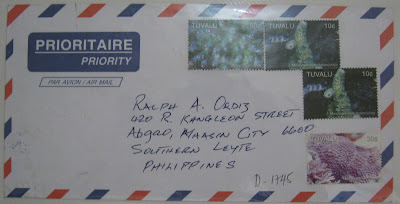 PRIORITAIRE
PRIORITY
PAR AVION / AIR MAIL
TUVALU
TUVALU 10c
TUVALU 10c
TUVALU 30c
RALPH A. ORDIZ
420 R. KANGLEON STREET
Abgao, MAASIN CITY 6600
SOUTHERN LEYTE
PHILIPPINES
D-1745